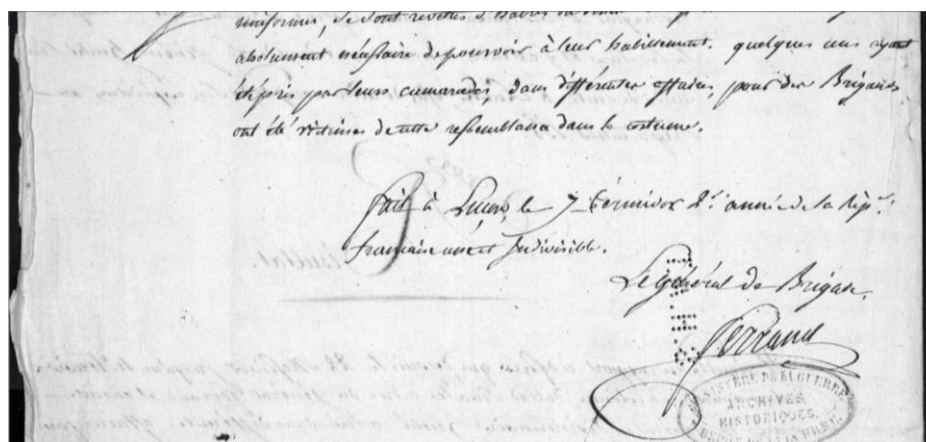 uniformes, se sont revêtus d'habits
absolument nécessaire de pourvoir à leur habillement. quelques uns ayant
été pris par leurs camarades, dans différentes affaires, pour des Brigands
ont été victimes de cette ressemblance dans le costume.
fait à Luçon, le 7 termidor 2e. année de la Rép.e
française une et Indivisible.
Le Général de Brigade.
Ferrand
MINISTÈRE DE LA GUERRE
ARCHIVES
HISTORIQUES.